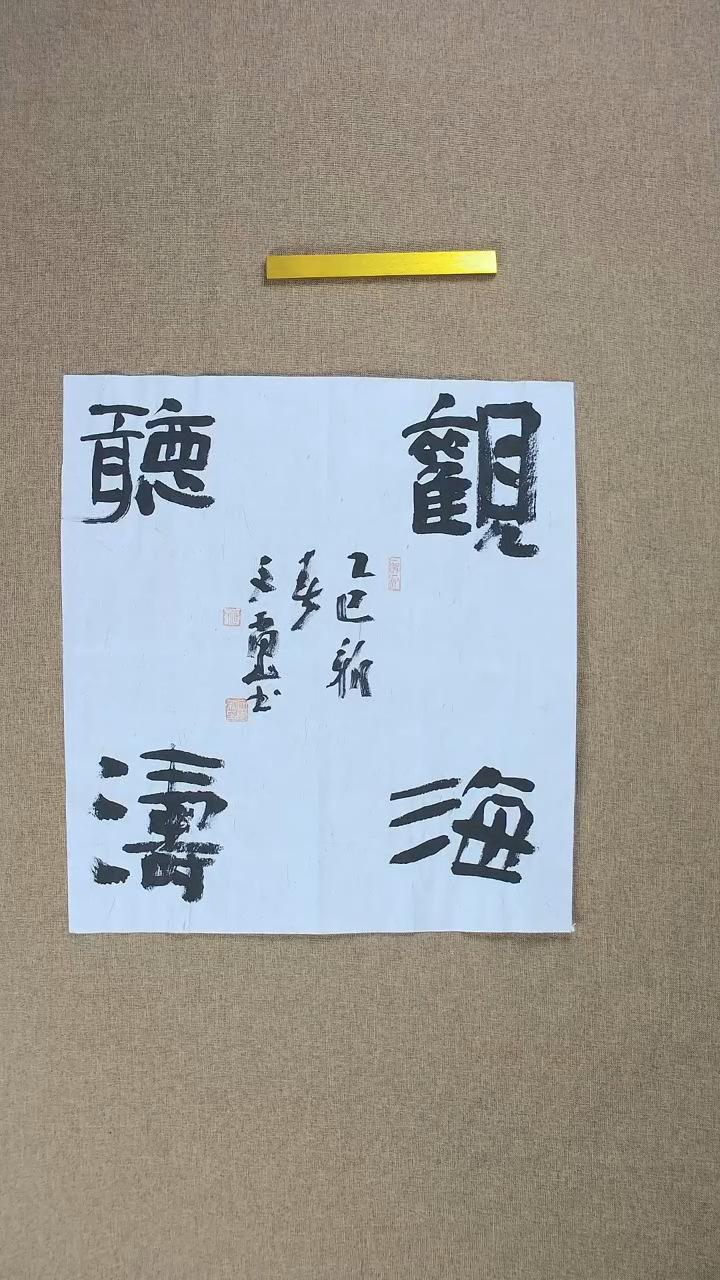 觀海
聽濤
乙巳新
春
文
书